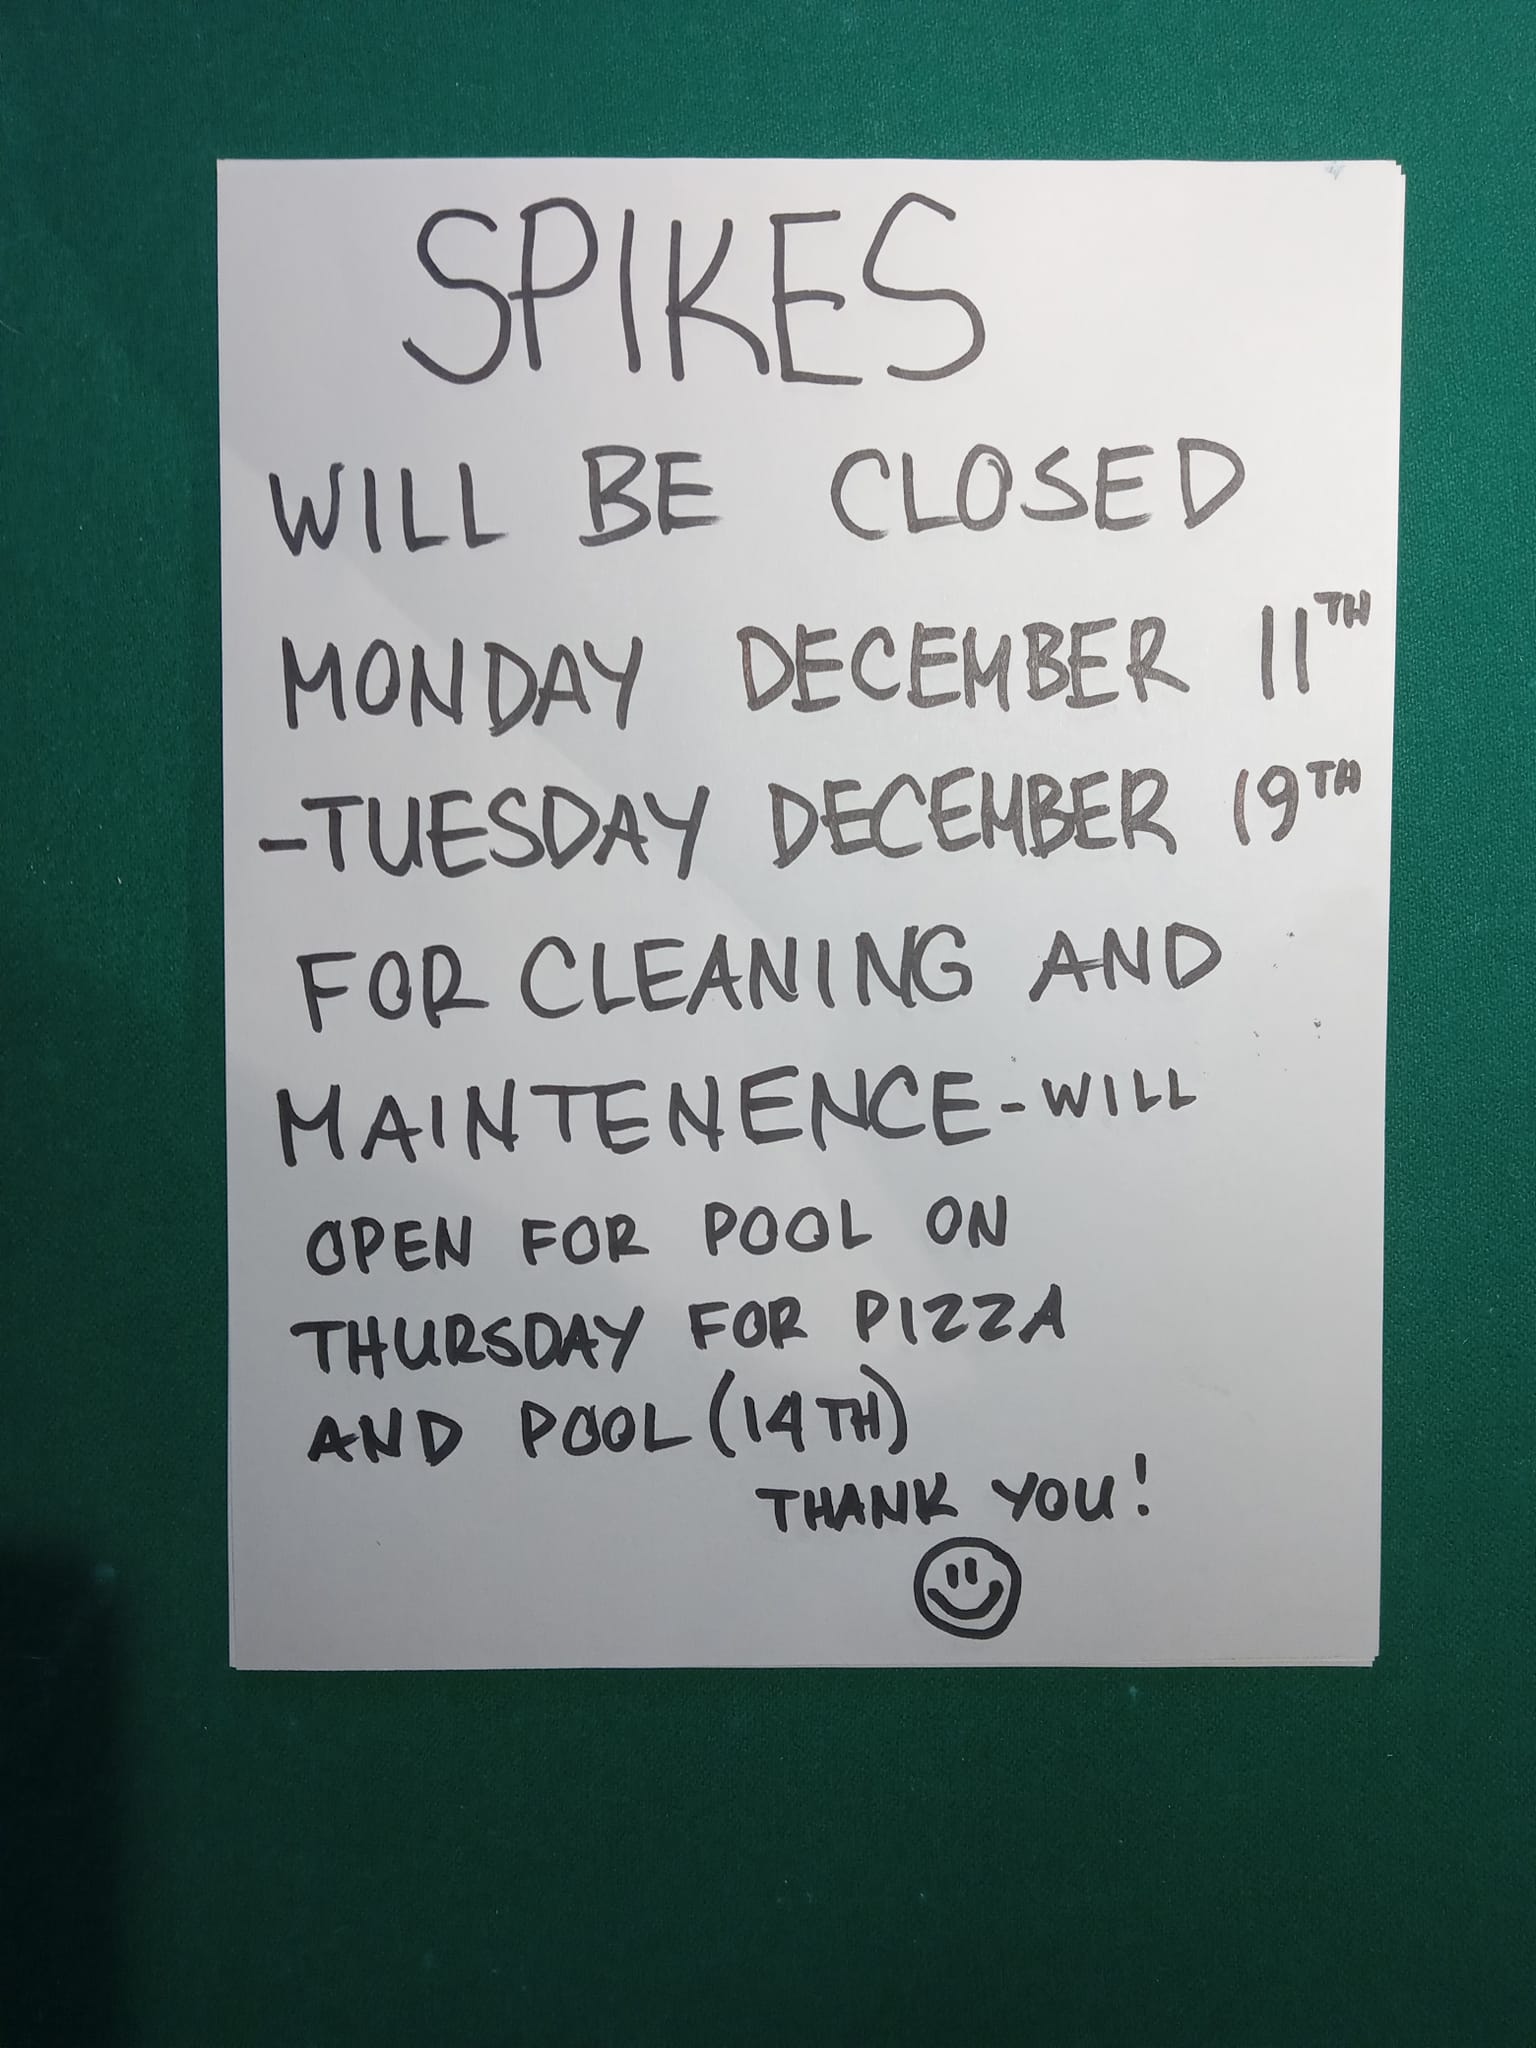 SPIKES
WILL BE CLOSED
MONDAY DECEMBER 11TH
-TUESDAY DECEMBER 19TH
FOR CLEANING AND
MAINTENENCE-WILL
OPEN FOR POOL ON
THURSDAY FOR PIZZA
AND POOL (14TH)
THANK YOU!